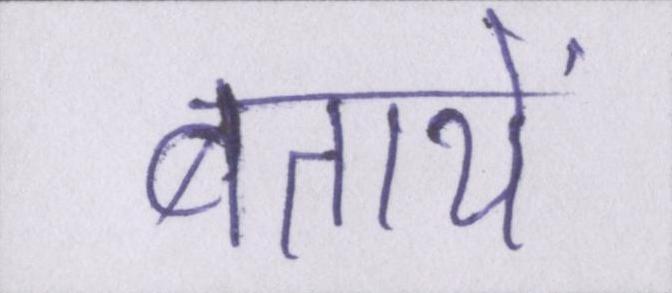 बतायें